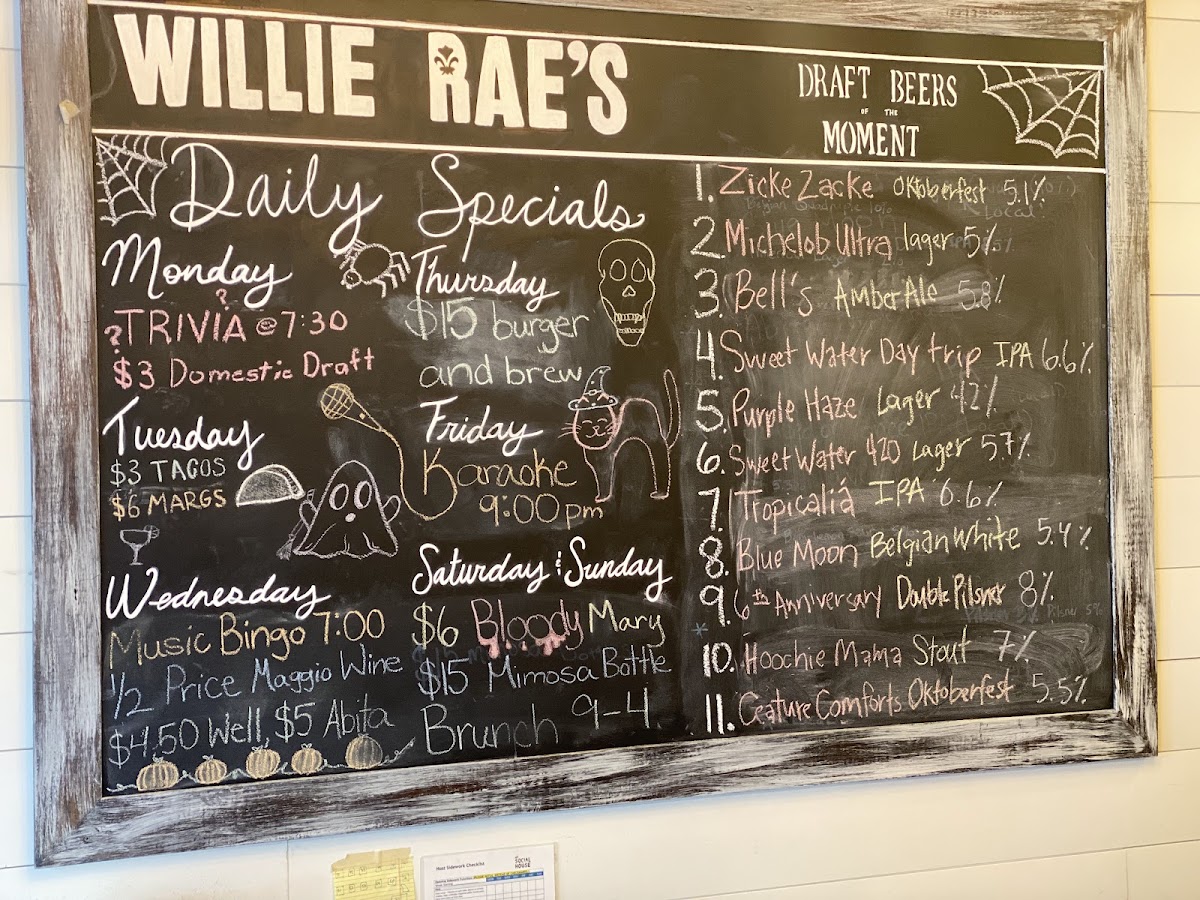 WILLIE RAE'S
DRAFT BEERS
OF THE
MOMENT
Daily Specials
Monday
?TRIVIA @ 7:30
?
$3 Domestic Draft
Tuesday
$3 TACOS
$6 MARGS
Wednesday
Music Bingo 7:00
1/2 Price Maggio Wine
$4.50 Well, $5 Abita
Thursday
$15 burger
and brew
Friday
Karaoke
9:00pm
Saturday & Sunday
$6 Bloody Mary
$15 Mimosa Bottle
Brunch 9-4.
1. Zicke Zacke Oktoberfest 5.1%
2. Michelob Ultra lager 5%
3. Bell's Amber Ale 5.8%
4. Sweet Water Day trip IPA 6.6%
5. Purple Haze Lager 4.2%
6. Sweet Water 420 Lager 5.7%
7. Tropicaliá IPA 6.6%
8. Blue Moon Belgian White 5.4%
9. 6th Anniversary Double Pilsner 8%
*
10. Hoochie Mama Stout 7%
11. Ceature Comforts Oktoberfest 5.5%
Host Sidework Checklist
SOCIAL
HOUSE